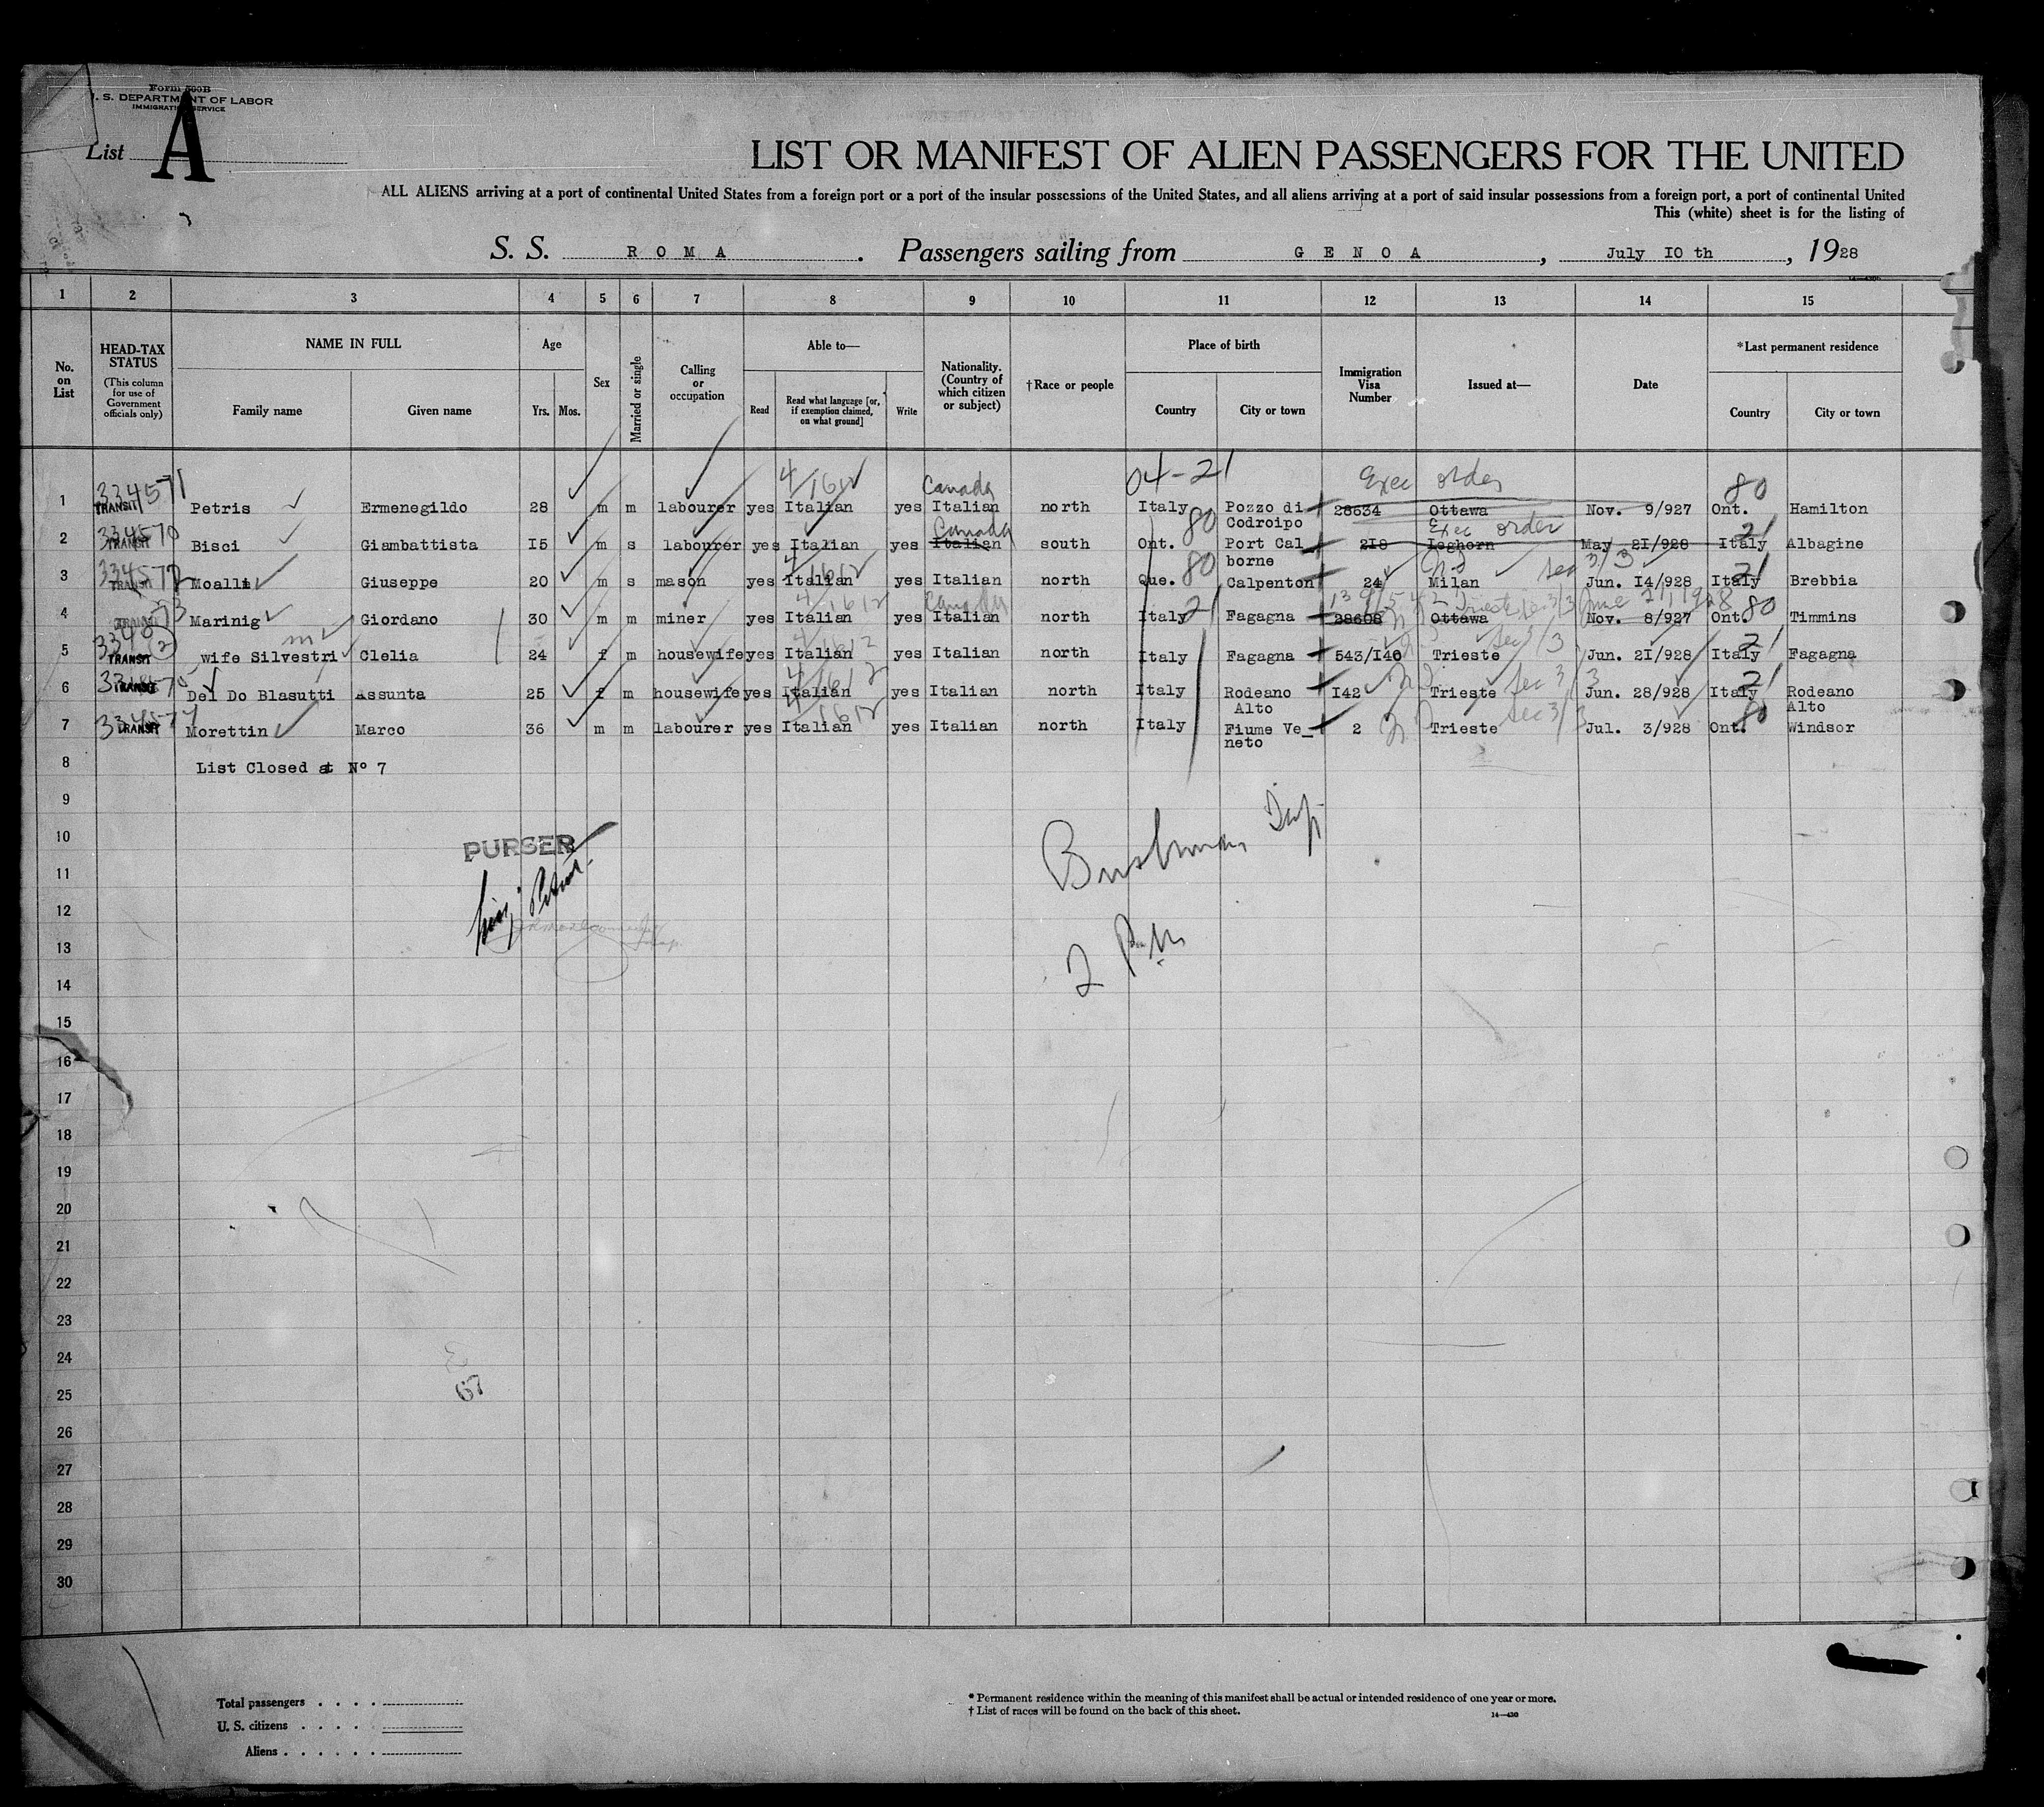 Form 500B
U. S. DEPARTMENT OF LABOR
IMMIGRATION SERVICE
List A
LIST OR MANIFEST OF ALIEN PASSENGERS FOR THE UNITED
ALL ALIENS arriving at a port of continental United States from a foreign port or a port of the insular possessions of the United States, and all aliens arriving at a port of said insular possessions from a foreign port, a port of continental United
This (white) sheet is for the listing of
S. S. ROMA. Passengers sailing from GENOA, July 10 th, 1928
1 2 3 4 5 6 7 8 9 10 11 12 13 14 15
No. on List
HEAD-TAX STATUS (This column for use of Government officials only)
NAME IN FULL Family name Given name
Age Yrs. Mos.
Sex
Married or single
Calling or occupation
Able to— Read Read what language [or, if exemption claimed, on what ground] Write
Nationality. (Country of which citizen or subject)
†Race or people
Place of birth Country City or town
Immigration Visa Number
Issued at—
Date
*Last permanent residence Country City or town
334571 4/1612 Canada 04-21 Exec order 80
1 TRANSIT Petris Ermenegildo 28 m m labourer yes Italian yes Italian north Italy Pozzo di Codroipo 28634 Ottawa Nov. 9/927 Ont. Hamilton
334570 Canada 80 Exec order 21
2 TRANSIT Bisci Giambattista 15 m s labourer yes Italian yes Italian south Ont. Port Cal borne 218 Leghorn May 21/928 Italy Albagine
334572 4/1612 80 Sec 3/3 21
3 TRANSIT Moalli Giuseppe 20 m s mason yes Italian yes Italian north Que. Calpenton 24 Milan Jun. 14/928 Italy Brebbia
4/1612 Canada 21 Trieste Sec 3/3 June 21/1928 80
4 TRANSIT Marinig Giordano 30 m m miner yes Italian yes Italian north Italy Fagagna 28608 Ottawa Nov. 8/927 Ont. Timmins
4/1612 Sec 3/3 21
5 TRANSIT wife Silvestri Clelia 24 f m housewife yes Italian yes Italian north Italy Fagagna 543/140 Trieste Jun. 21/928 Italy Fagagna
4/1612 Sec 3/3 21
6 TRANSIT Del Do Blasutti Assunta 25 f m housewife yes Italian yes Italian north Italy Rodeano Alto 142 Trieste Jun. 28/928 Italy Rodeano Alto
4/1612 Sec 3/3 80
7 TRANSIT Morettin Marco 36 m m labourer yes Italian yes Italian north Italy Fiume Ve_ neto 2 Trieste Jul. 3/928 Ont. Windsor
8 List Closed at Nº 7
9
10 PURSER
11
12
13 2 PM
14
15
16
17
18
19
20
21
22
23
24
25 67
26
27
28
29
30
Total passengers
U. S. citizens
Aliens
* Permanent residence within the meaning of this manifest shall be actual or intended residence of one year or more.
† List of races will be found on the back of this sheet.
14—430